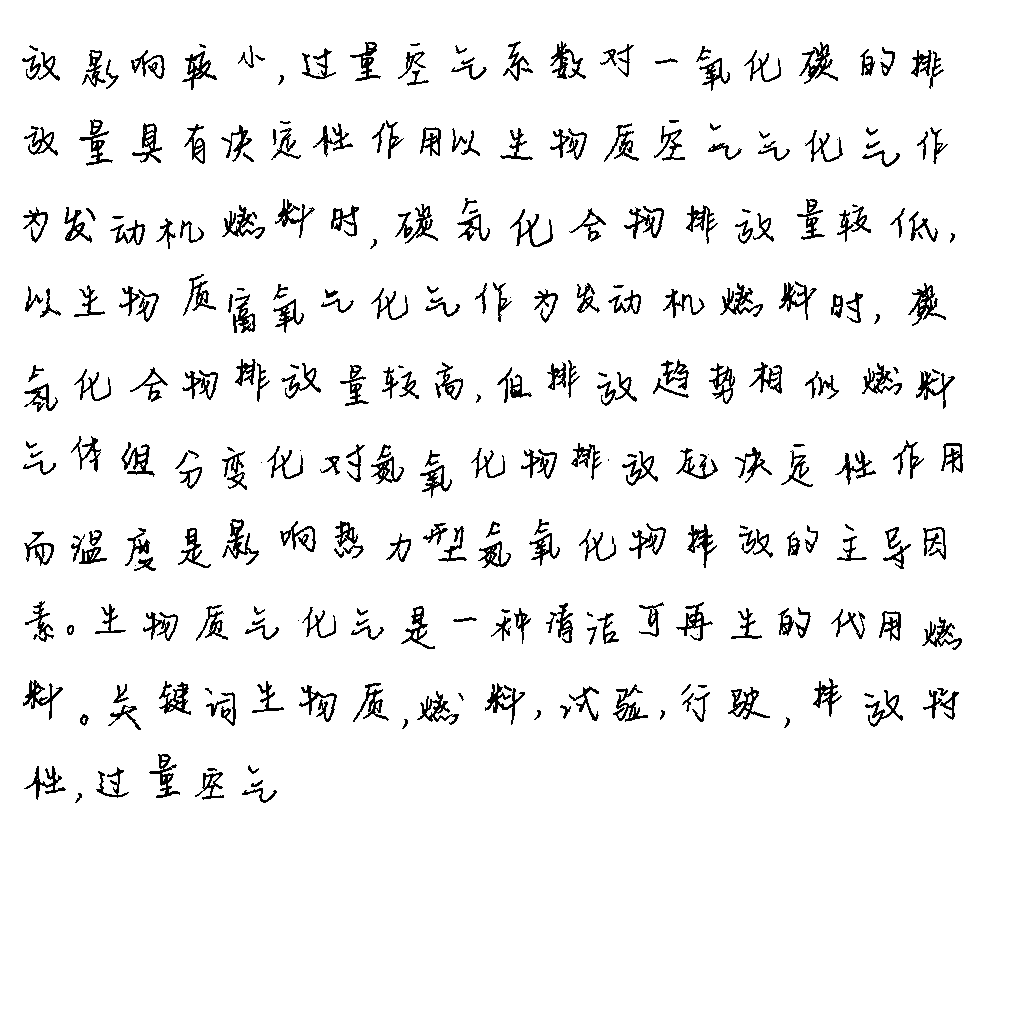 放影响较小,过量空气系数对一氧化碳的排
放量具有决定性作用以生物质空气气化气作
为发动机燃料时,碳氢化合物排放量较低,
以生物质富氧气化气作为发动机燃料时,碳
氢化合物排放量较高,但排放趋势相似燃料
气体组分变化对氮氧化物排放起决定性作用
而温度是影响热力型氮氧化物排放的主导因
素。生物质气化气是一种清洁可再生的代用燃
料。关键词生物质,燃料,试验,行驶,排放特
性,过量空气